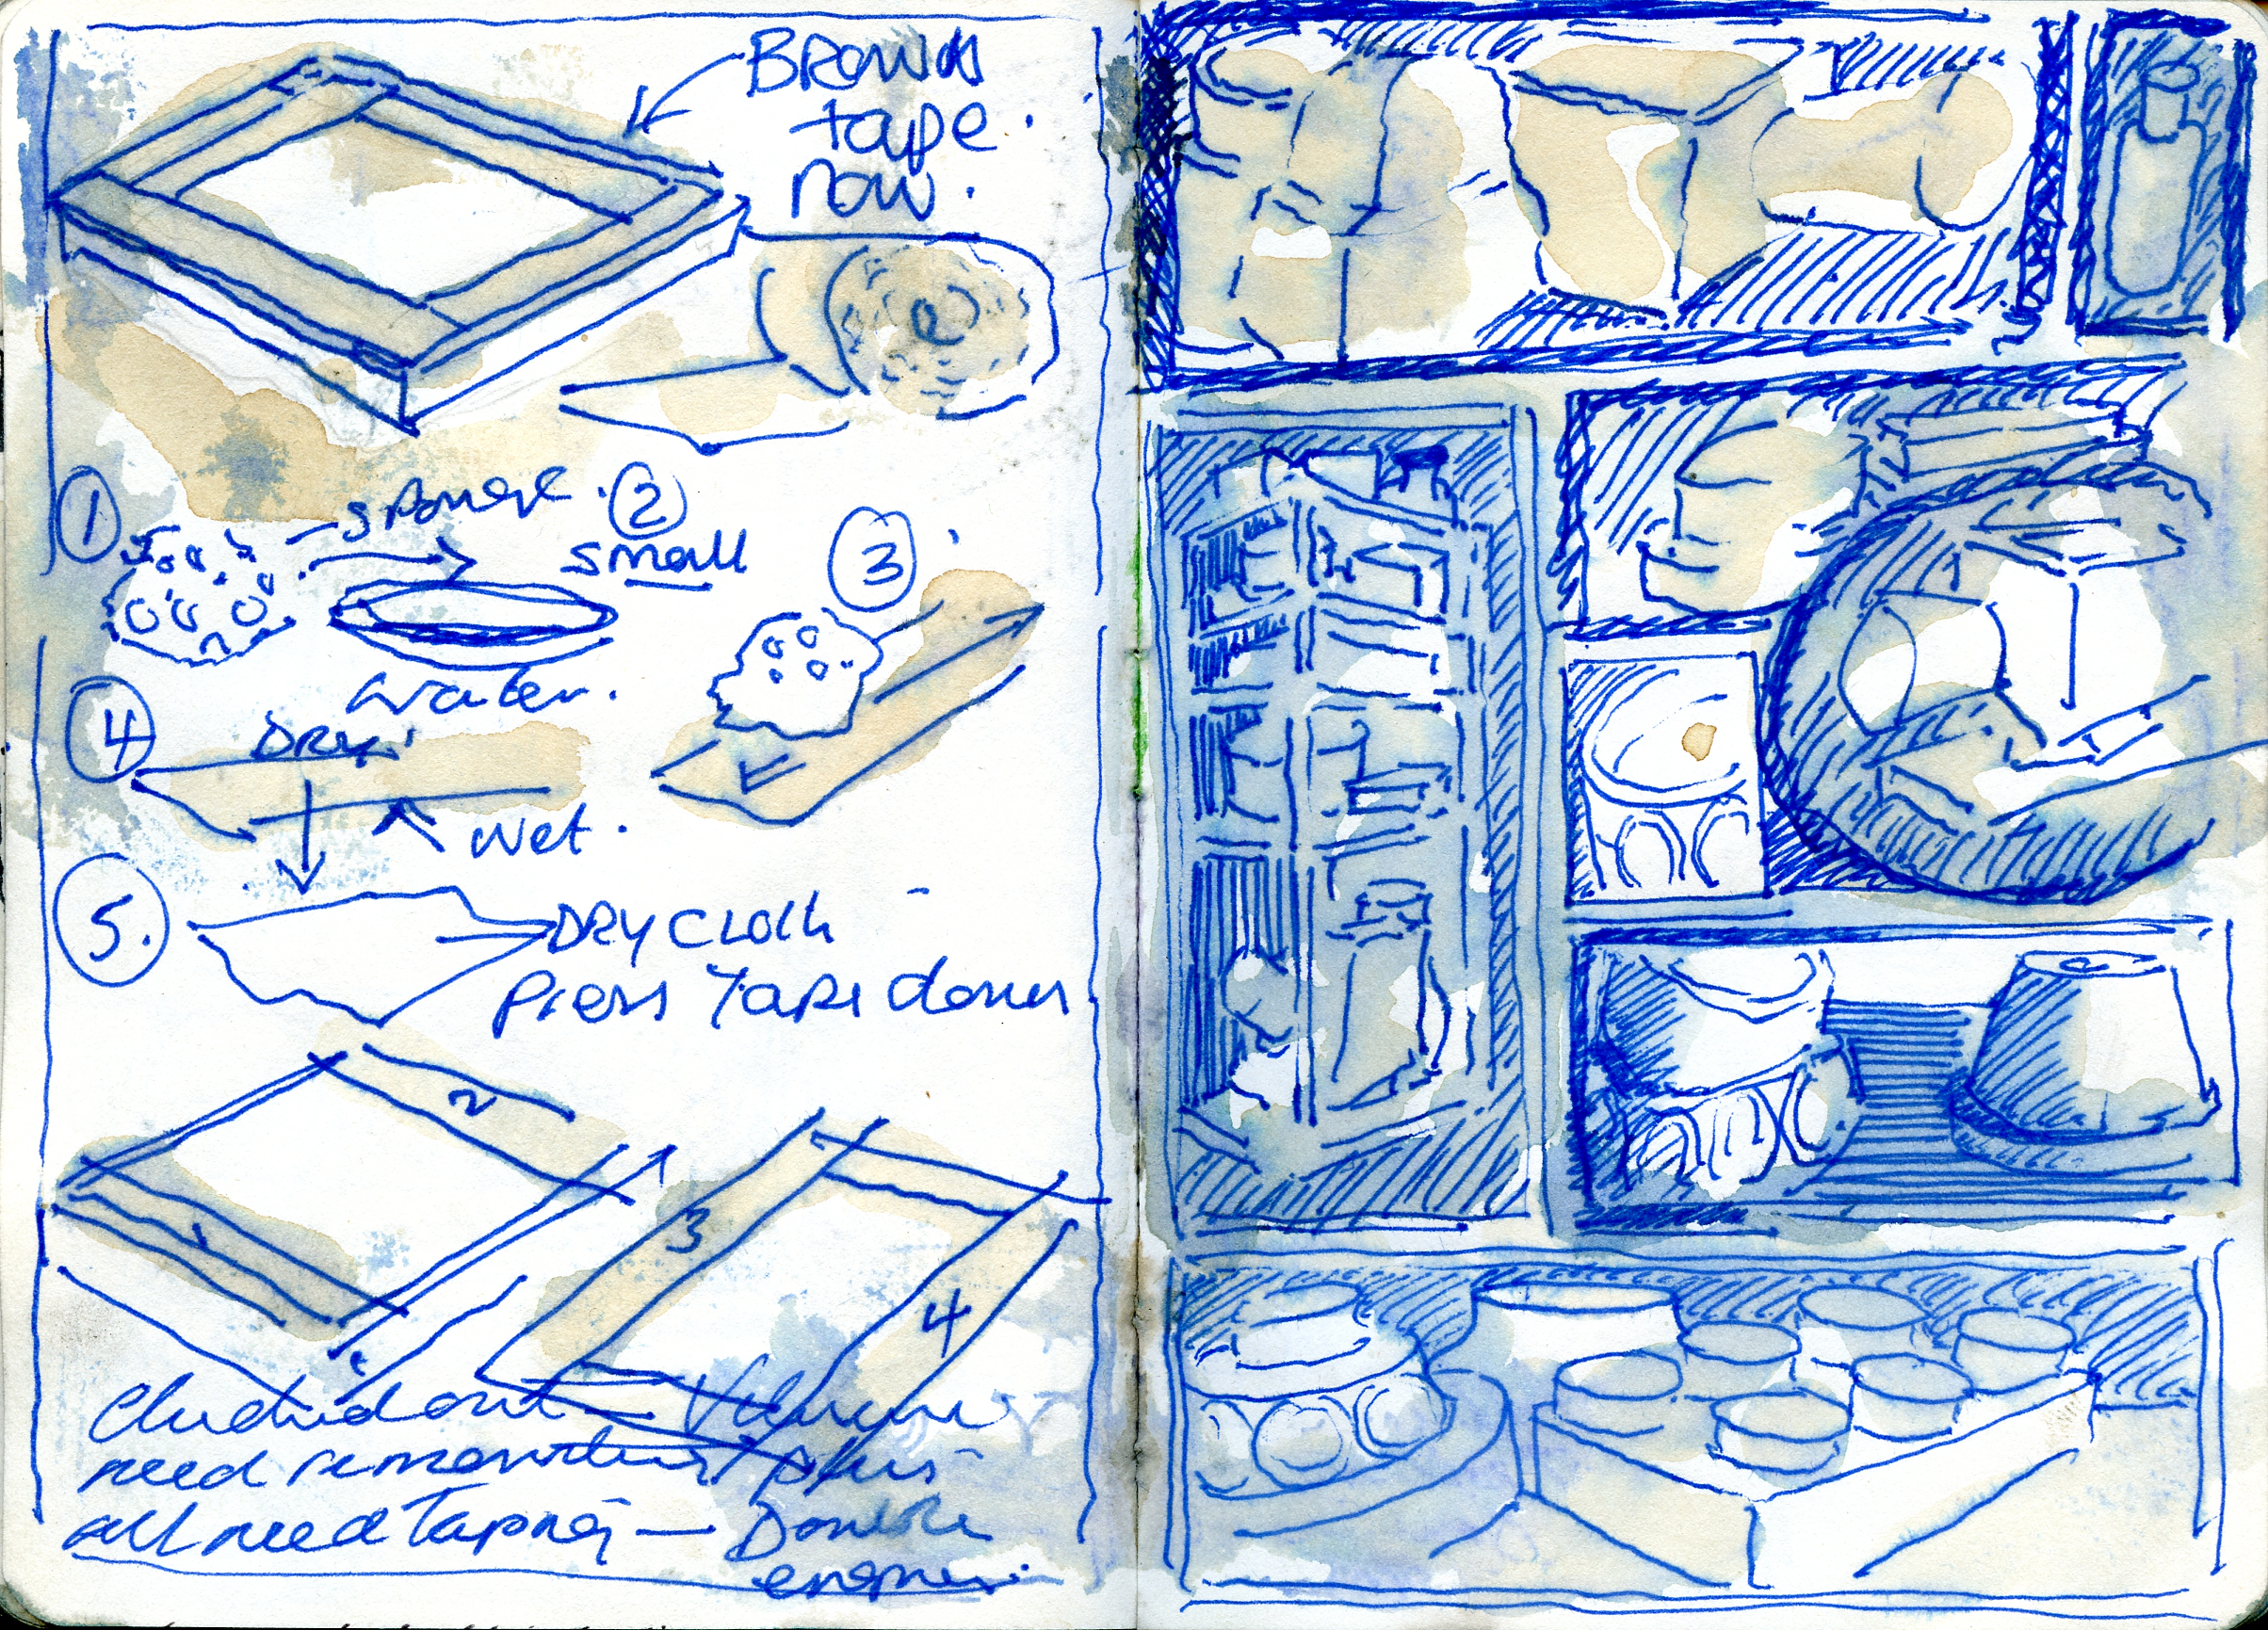 BROWN
tape.
now.
1
sponge.
2
small
3
water.
4
DRY.
wet.
5.
DRY CLOTH
Press Tape down
2
1
3
4
need
plus
all need Taping — Double